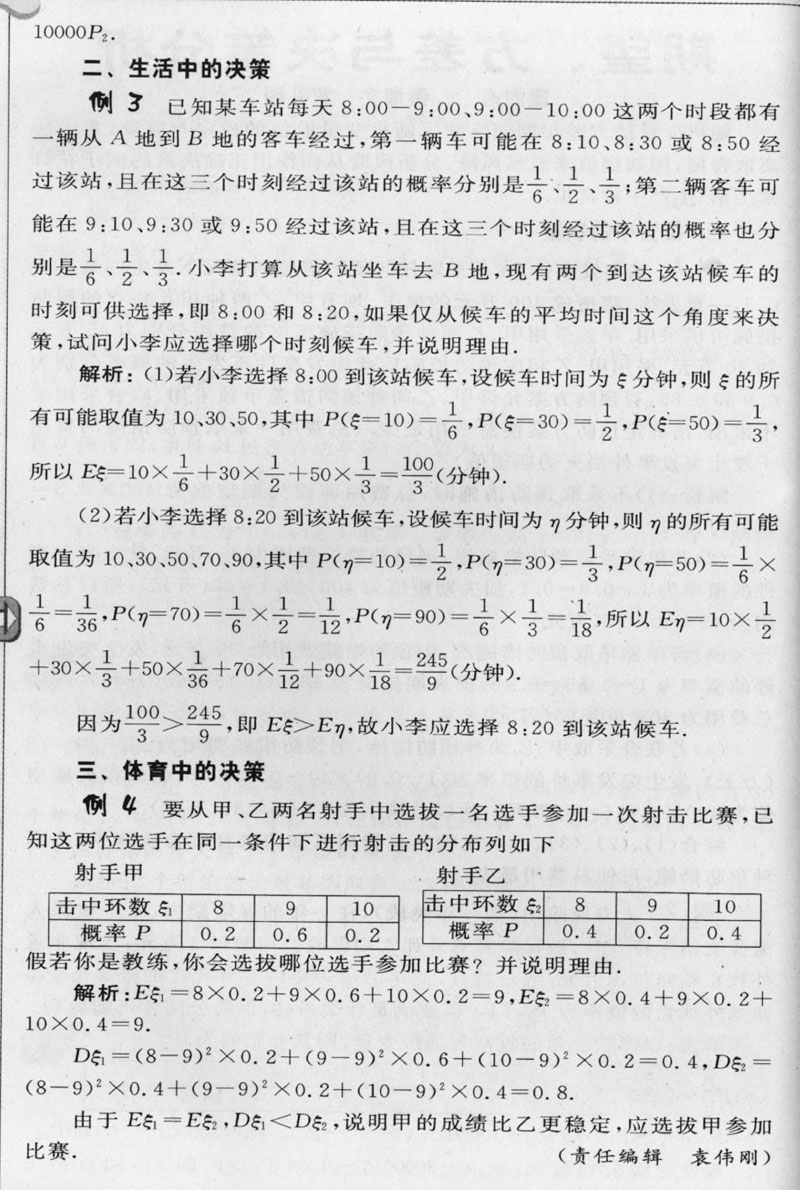 10000P₂.
二、生活中的决策
例3 已知某车站每天 8:00－9:00、9:00－10:00 这两个时段都有
一辆从 A 地到 B 地的客车经过,第一辆车可能在 8:10、8:30 或 8:50 经
过该站,且在这三个时刻经过该站的概率分别是 1/6、1/2、1/3;第二辆客车可
能在 9:10、9:30 或 9:50 经过该站,且在这三个时刻经过该站的概率也分
别是 1/6、1/2、1/3.小李打算从该站坐车去 B 地,现有两个到达该站候车的
时刻可供选择,即 8:00 和 8:20,如果仅从候车的平均时间这个角度来决
策,试问小李应选择哪个时刻候车,并说明理由.
解析:(1)若小李选择 8:00 到该站候车,设候车时间为 ξ 分钟,则 ξ 的所
有可能取值为 10、30、50,其中 P(ξ=10)=1/6,P(ξ=30)=1/2,P(ξ=50)=1/3,
所以 Eξ=10×1/6+30×1/2+50×1/3=100/3(分钟).
(2)若小李选择 8:20 到该站候车,设候车时间为 η 分钟,则 η 的所有可能
取值为 10、30、50、70、90,其中 P(η=10)=1/2,P(η=30)=1/3,P(η=50)=1/6×
1/6=1/36,P(η=70)=1/6×1/2=1/12,P(η=90)=1/6×1/3=1/18,所以 Eη=10×1/2
+30×1/3+50×1/36+70×1/12+90×1/18=245/9(分钟).
因为 100/3>245/9,即 Eξ>Eη,故小李应选择 8:20 到该站候车.
三、体育中的决策
例4 要从甲、乙两名射手中选拔一名选手参加一次射击比赛,已
知这两位选手在同一条件下进行射击的分布列如下
射手甲
击中环数 ξ₁ 8 9 10
概率 P 0.2 0.6 0.2
射手乙
击中环数 ξ₂ 8 9 10
概率 P 0.4 0.2 0.4
假若你是教练,你会选拔哪位选手参加比赛? 并说明理由.
解析:Eξ₁=8×0.2+9×0.6+10×0.2=9,Eξ₂=8×0.4+9×0.2+
10×0.4=9.
Dξ₁=(8-9)²×0.2+(9-9)²×0.6+(10-9)²×0.2=0.4,Dξ₂=
(8-9)²×0.4+(9-9)²×0.2+(10-9)²×0.4=0.8.
由于 Eξ₁=Eξ₂,Dξ₁<Dξ₂,说明甲的成绩比乙更稳定,应选拔甲参加
比赛. (责任编辑 袁伟刚)